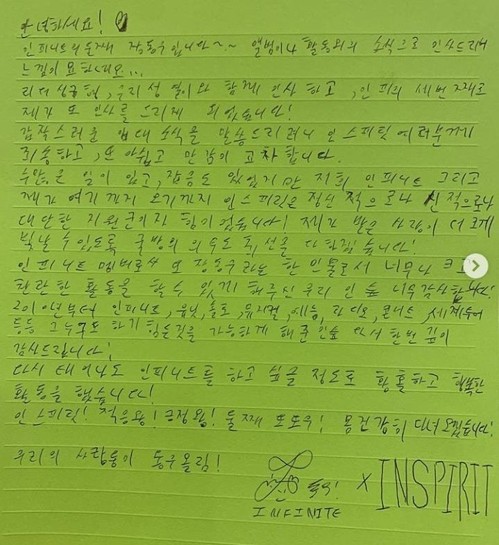 안녕하세요!
인피니트의 둘째 장동우입니다~~ 앨범이나 활동외의 소식으로 인사드리려
느낌이 묘하네요...
리더 성규형, 우리 성열이와 함께 인사하고, 인피의 세번째로
제가 또 인사를 드리게 되었습니다!
갑작스러운 입대 소식을 말씀드리려니 인스피릿 여러분께
죄송하고, 또 아쉽고 만감이 교차합니다.
수많은 일이 있고, 잡음도 있었지만 저희 인피니트 그리고
제가 여기까지 오기까지 인스피릿은 정신적으로나 신적으로나
대단한 지원군이자 힘이었습니다! 제가 받은 사랑이 더 크게
빛날 수 있도록 국방의 의무도 최선을 다하겠습니다!
인피니트 멤버로서 또 장동우라는 한 인물로서 너무나 크고
찬란한 활동을 할 수 있게 해주신 우리 인숲 너무 감사합니다!
2010년부터 인피니트, 유닛, 솔로, 뮤지컬, 예능, 라디오, 콘서트, 세계투어
등등 그 누구도 하기 힘든것을 가능하게 해준 인숲 다시 한번 깊이
감사드립니다!
다시 태어나도 인피니트를 하고 싶을 정도로 황홀하고 행복한
활동을 했습니다!
인스피릿! 적응왕! 긍정왕! 둘째 또또우! 몸 건강히 다녀오겠습니다!
우리의 사랑둥이 동우 올림!
INFINITE X INSPIRIT